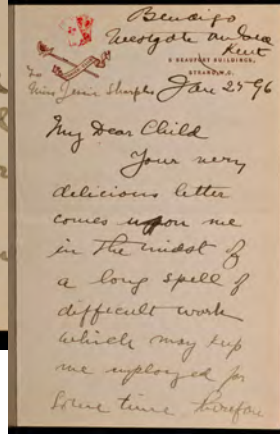 Bendigo
Westgate on Sea
Kent
5 BEAUFORT BUILDINGS,
STRAND, W.C.
To
Miss Jenie Sharples
Jan 25 96
My Dear Child
Your very
delicious letter
comes upon me
in the midst of
a long spell of
difficult work
which may kep
me employed for
some time therefore